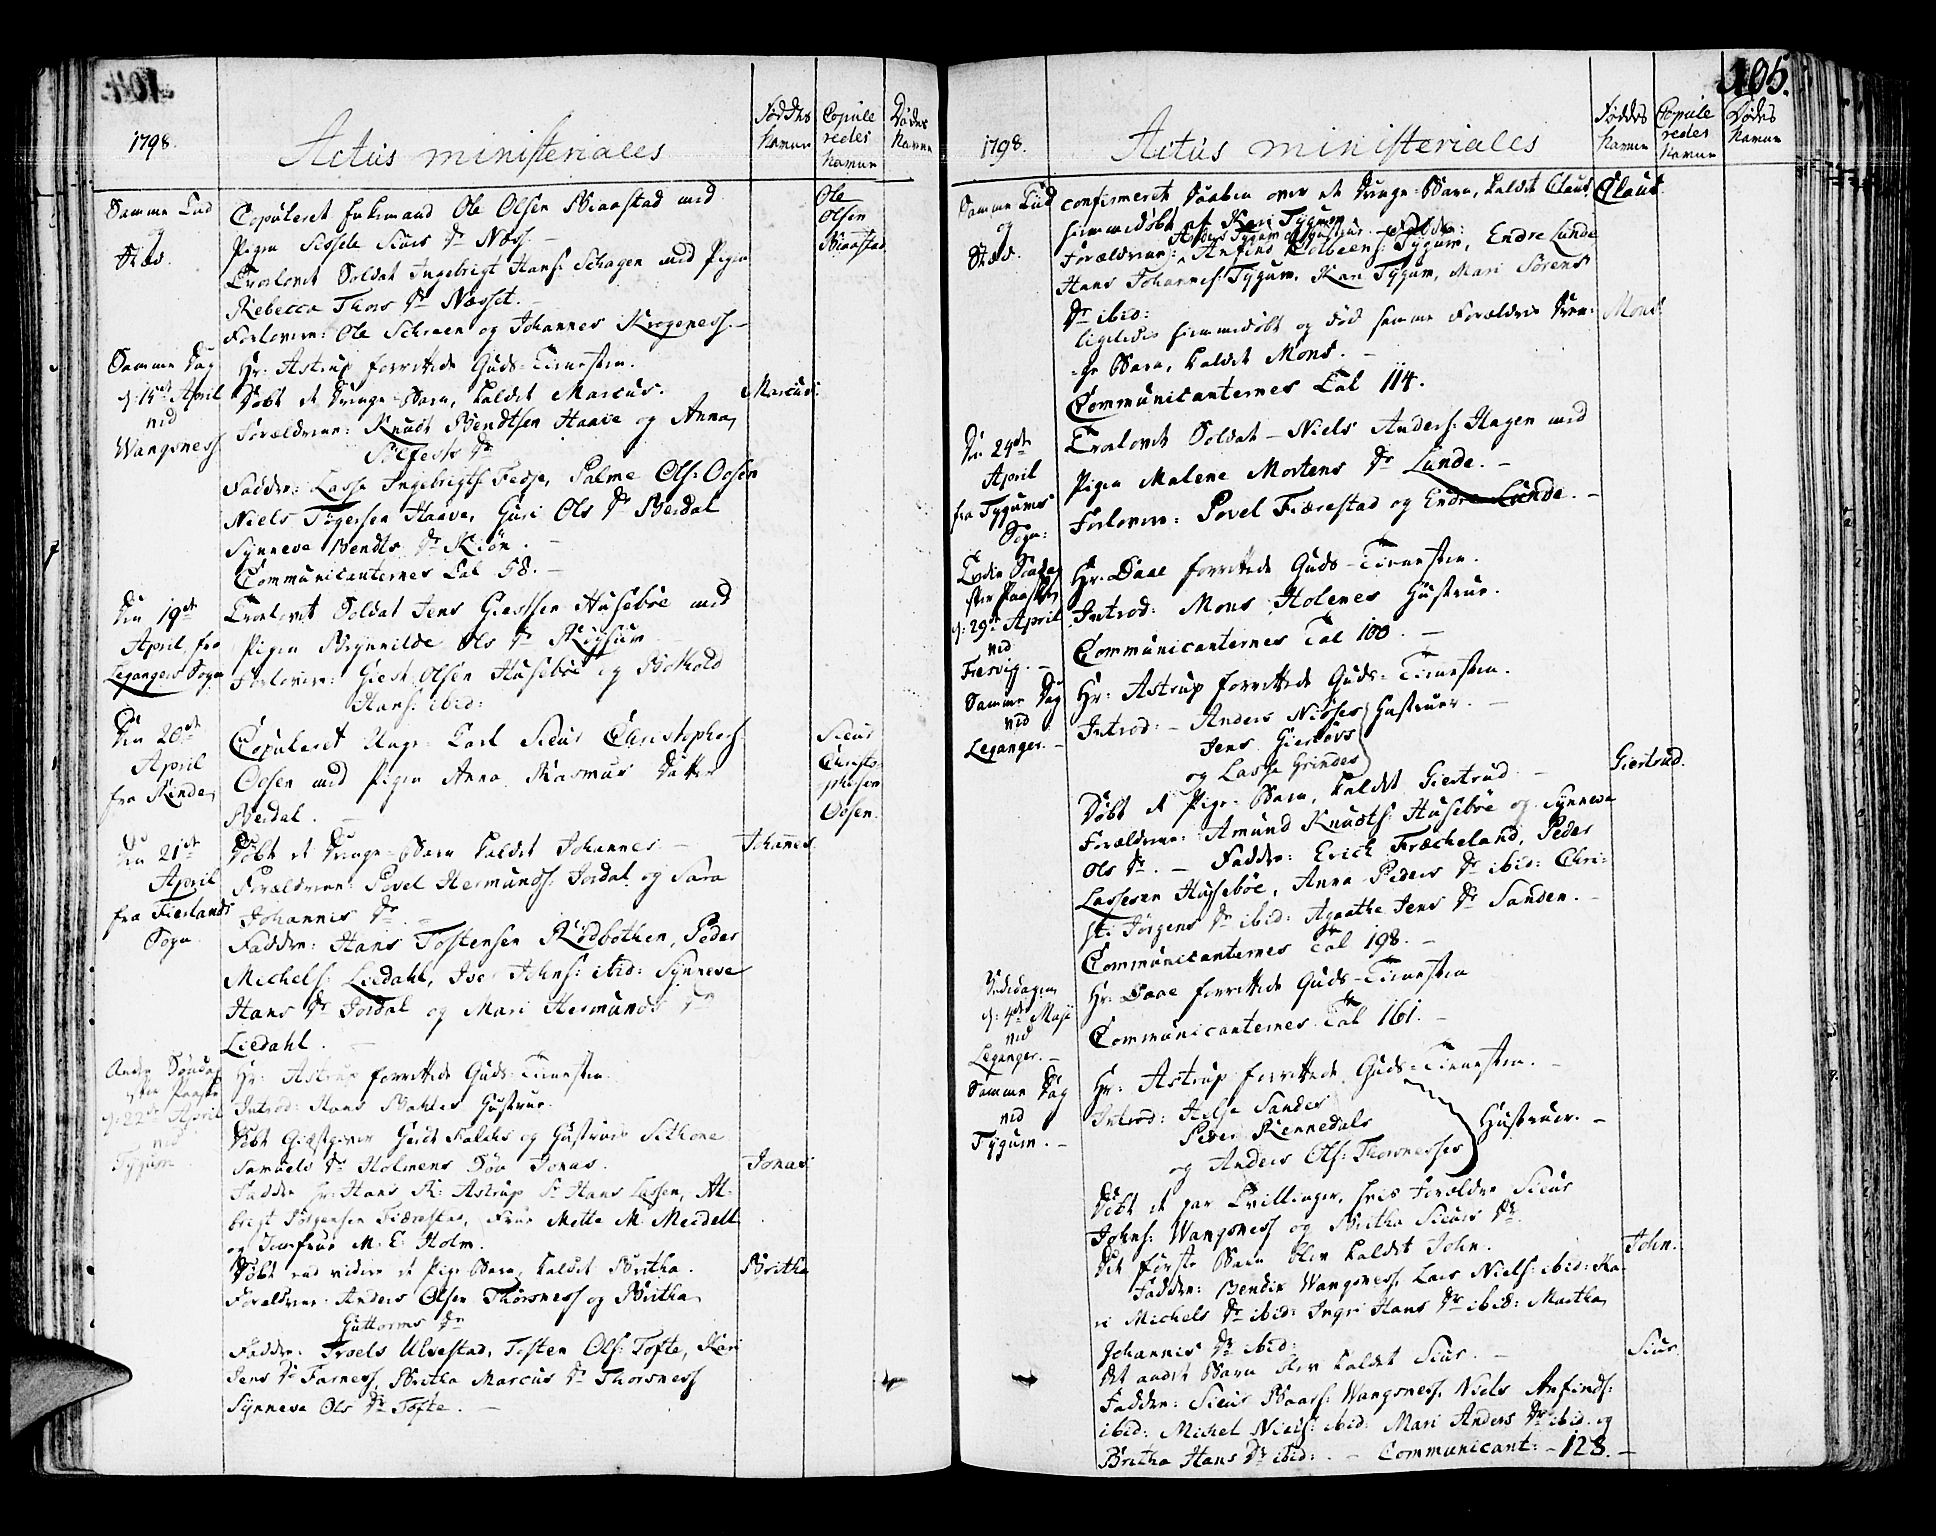 1798.
Actus ministeriales
Føddes Navne
Copuleredes Navne
Dødes Navne
Samme Tid og Stæd.
Copuleret Enkemand Ole Olsen Biaastad med
Pigen Sissele Siurs Dr Næss. –
Ole Olsen Biaastad
Trolovet Soldat Ingebrigt Hans: Schagen med Pigen
Rebecca Thors Dr Næsset. –
Forlovere: Ole Schreen og Johannes Krogeness. –
Samme Dag d: 15de April ved Wangsness
Hr. Astrup forrettede Guds-Tienesten.
Døbt et Drenge-Barn, kaldet Marcus.
Marcus.
Forældrene: Knudt Bendtsen Haave og Anna
Sielfests Dr
Faddere: Lasse Ingebrigts: Fedje, Palme Ols: Oosen
Niels Togersen Haave, Guri Ols Dr Berdal
Synneve Bendts Dr Kiøn. –
Communicanternes Tal 58. –
Den 19de April, fra Legangers Sogn
Trolovet Soldat Jens Giestsen Husebøe med
Pigen Brynnilde Ols Dr Rysum
Forlovere: Giest Olsen Husebøe og Bothold
Hans: ibid:
Den 20de April fra Rinde
Copuleret Unge-Karl Siur Christophers:
Oosen med Pigen Anna Rasmus Datter
Berdal. –
Siur Christophersen Oosen.
Den 21de April fra Fierlands Sogn.
Døbt et Drenge-Barn kaldet Johannes –
Johannes.
Forældrene: Povel Hermunds: Jordal og Sara
Johannis Dr –
Faddere: Hans Tostensen Rødbothen, Peder
Michels: Liedahl, Iver Johns: ibid: Synneve
Hans Dr Jordal og Mari Hermunds Dr
Liedahl. –
Anden Søndag efter Paaske d: 22de April ved Tygum.
Hr: Astrup forrettede Guds-Tienesten.
Introd: Hans Bahles Hustrue.
Døbt Giæstgiver Gerdt Falchs og Hustrues Sithone
Samuels Dr Holmens Søn Jonas.
Jonas.
Faddere Hr: Hans K: Astrup Sr Hans Lassen, Al-
brigt Jørgensen Fiærestad, Frue Mette M: Meidell
og Jomfrue M: E: Holm.
Døbt end videre et Pige Barn, kaldet Britha.
Britha
Forældrene: Anders Olsen Thorsness og Britha
Guttorms Dr
Faddere: Troels Ulvestad, Tosten Ols: Tofte, Kari
Jens Dr Farness, Britha Marcus Dr Thorsness
Synneve Ols Dr Tofte. –
105.
1798.
Actus ministeriales
Føddes Navne
Copuleredes Navne
Dødes Navne
Samme Tiid og Stæd.
confirmeret Daaben over et Drenge-Barn, kaldet Claus,
Claus.
hiemmedøbt af Kari Tygum
Forældrene: Anders Tygum og Hustrue. – Faddere: Anfind Colbeens: Tygum, Endre Lunde
Hans Johannes: Tygum, Kari Tygum, Mari Sørens
Dr ibid:
ligeledes hiemmedøbt og død samme Forældres Dren-
ge Barn, kaldet Mons. –
Mons.
Communicanternes Tal 114.
Den 24de April fra Tygums Sogn:
Trolovet Soldat – Niels Anders: Hagen med
Pigen Malene Mortens Dr Lunde. –
Forlovere: Povel Fiærestad og Endre Lunde. –
Tredie Søndag efter Paaske d: 29de April ved Fresvig. –
Hr. Daae forrettede Guds-Tienesten.
Introd: Mons Holenes Hustrue.
Communicanternes Tal 100. –
Samme Dag ved Leganger. –
Hr: Astrup forrettede Guds-Tienesten.
Introd: – Anders Nisses
Jens Gierløvs
og Lasse Grindes
Hustruer. –
Døbt et Pige-Barn, kaldet Giertrud –
Giertrud.
Forældrene: Amund Knudts: Husebøe og Synneve
Ols Dr. – Faddere: Erich Fræcheland, Peder
Lassesen Husebøe, Anna Peders Dr ibid: Chri-
sti Jørgens Dr ibid: Agaathe Jens Dr Sanden. –
Communicanternes Tal 198. –
Bededagen d: 4de Maji ved Leganger. –
Hr: Daae forrettede Guds-Tienesten
Communicanternes Tal 161. –
Samme Dag ved Tygum. –
Hr: Astrup forrettede Guds-Tienesten. –
Introd: Helje Sandes
Peder Rennedals
og Anders Ols: Thorsnesses
Hustruer. –
Døbt et par Tvillinger, hvis Forældre Siur
Johns: Wangsness og Britha Siurs Dr.
Det første Barn blev kaldet John.
John.
Faddere: Bendix Wangsness, Lars Niels: ibid: Ka-
ri Michels Dr ibid: Ingri Hans Dr ibid: Martha
Johannis Dr ibid:
Det andet Barn blev kaldet Siur. –
Siur.
Faddere: Siur Baars: Wangsness, Niels Anfinds:
ibid: Michel Niels: ibid: Mari Anders Dr ibid. og
Britha Hans Dr ibid: – Communicant: – 128. –